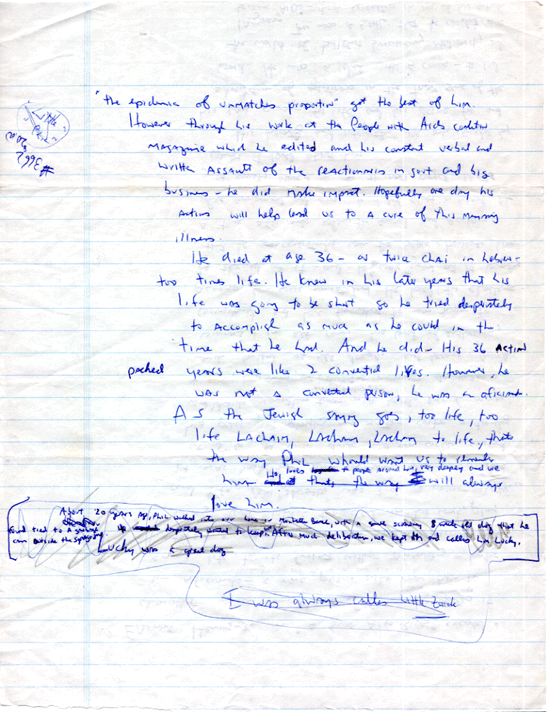 "the epidemic of unmatched proportion" got the best of him.
However through his work at the People with Aids coalition
Magazine which he edited and his constant verbal and
written assault of the reactionaries in govt and big
business - he did make impact. Hopefully one day his
actions will help lead us to a cure of this
illness.
He died at age 36 - or twice chai in hebrew -
too times life. He knew in his later years that his
life was going to be short so he tried desperately
to accomplish as much as he could in the
time that he had. And he did - His 36 action
packed years were like 2 convential lifes. However, he
was not a convential person, he was an
As the Jewish saying goes, too life, too
life Lachaim, Lachaim, Lachaim to life, thats
the way Phil whould want us to
He loves to people around him, very deeply and we
him thats the way I will always
love him.
About 20 years ago, Phil walked into our home in with a small 8 week old dog that he
found tied to a garbage
can outside the desperately wanted to keep. After much deliberation, we kept and called him Lucky.
Lucky was a great dog
I was always called Little Zwick
Little
Phil
#3662